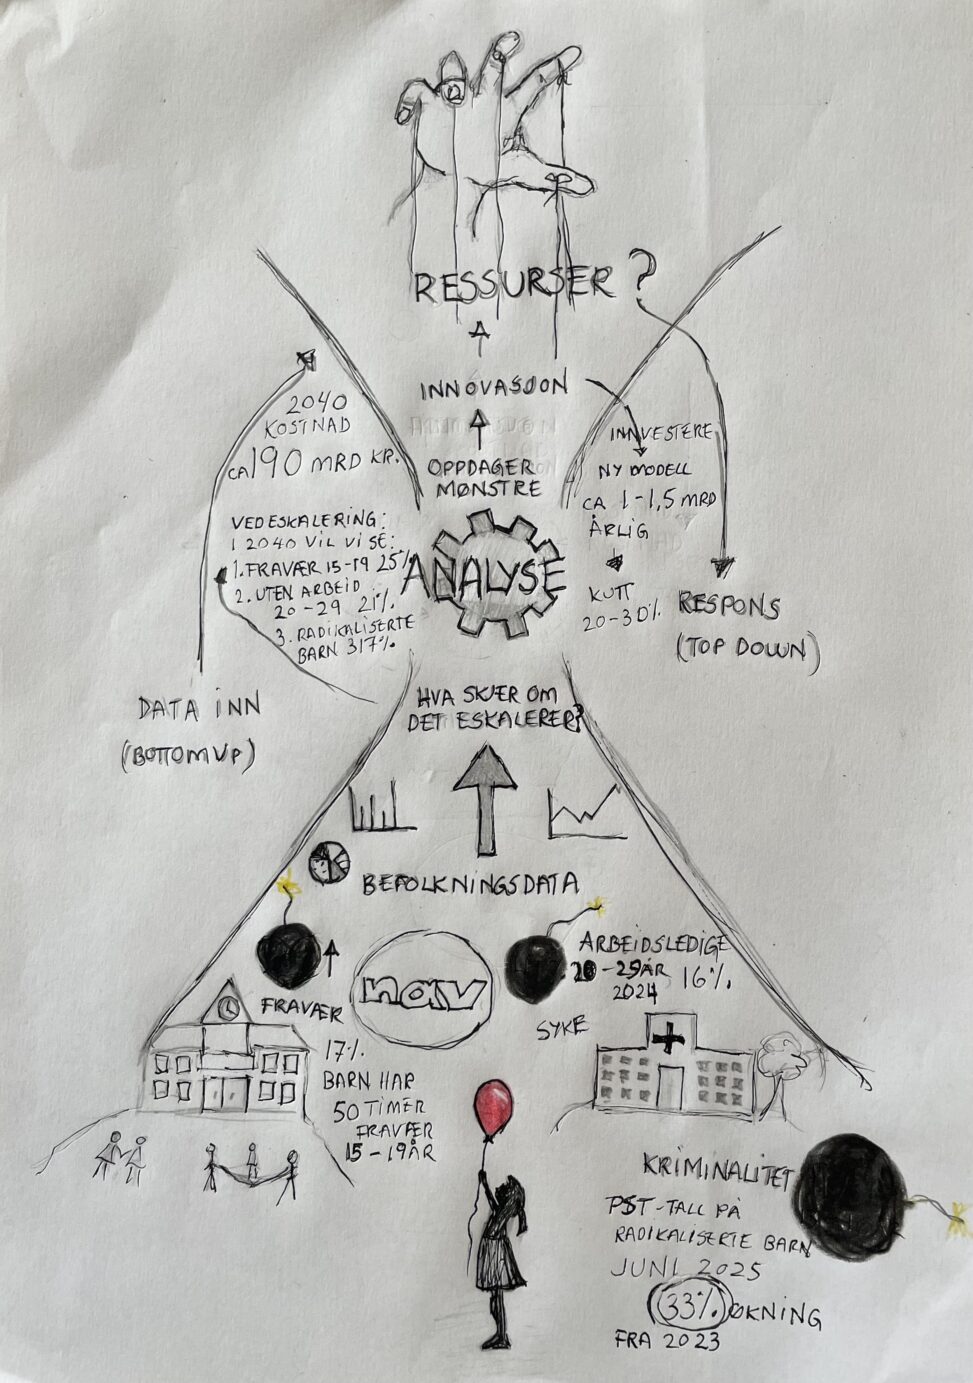 RESSURSER?
INNOVASJON
OPPDAGER
MØNSTRE
ANALYSE
2040
KOSTNAD
CA 190 MRD KR.
VED ESKALERING:
I 2040 VIL VI SE:
1. FRAVÆR 15-19 25%
2. UTEN ARBEID
20-29 21%
3. RADIKALISERTE
BARN 317%
DATA INN
(BOTTOM UP)
INNVESTERE
NY MODELL
CA 1-1,5 MRD
ÅRLIG
KUTT
20-30%
RESPONS
(TOP DOWN)
HVA SKJER OM
DET ESKALERER?
BEFOLKNINGSDATA
FRAVÆR
nav
ARBEIDSLEDIGE
20-29 ÅR 16%
2024
SYKE
17%
BARN HAR
50 TIMER
FRAVÆR
15-19 ÅR
KRIMINALITET
PST-TALL PÅ
RADIKALISERTE BARN
JUNI 2025
33% ØKNING
FRA 2023